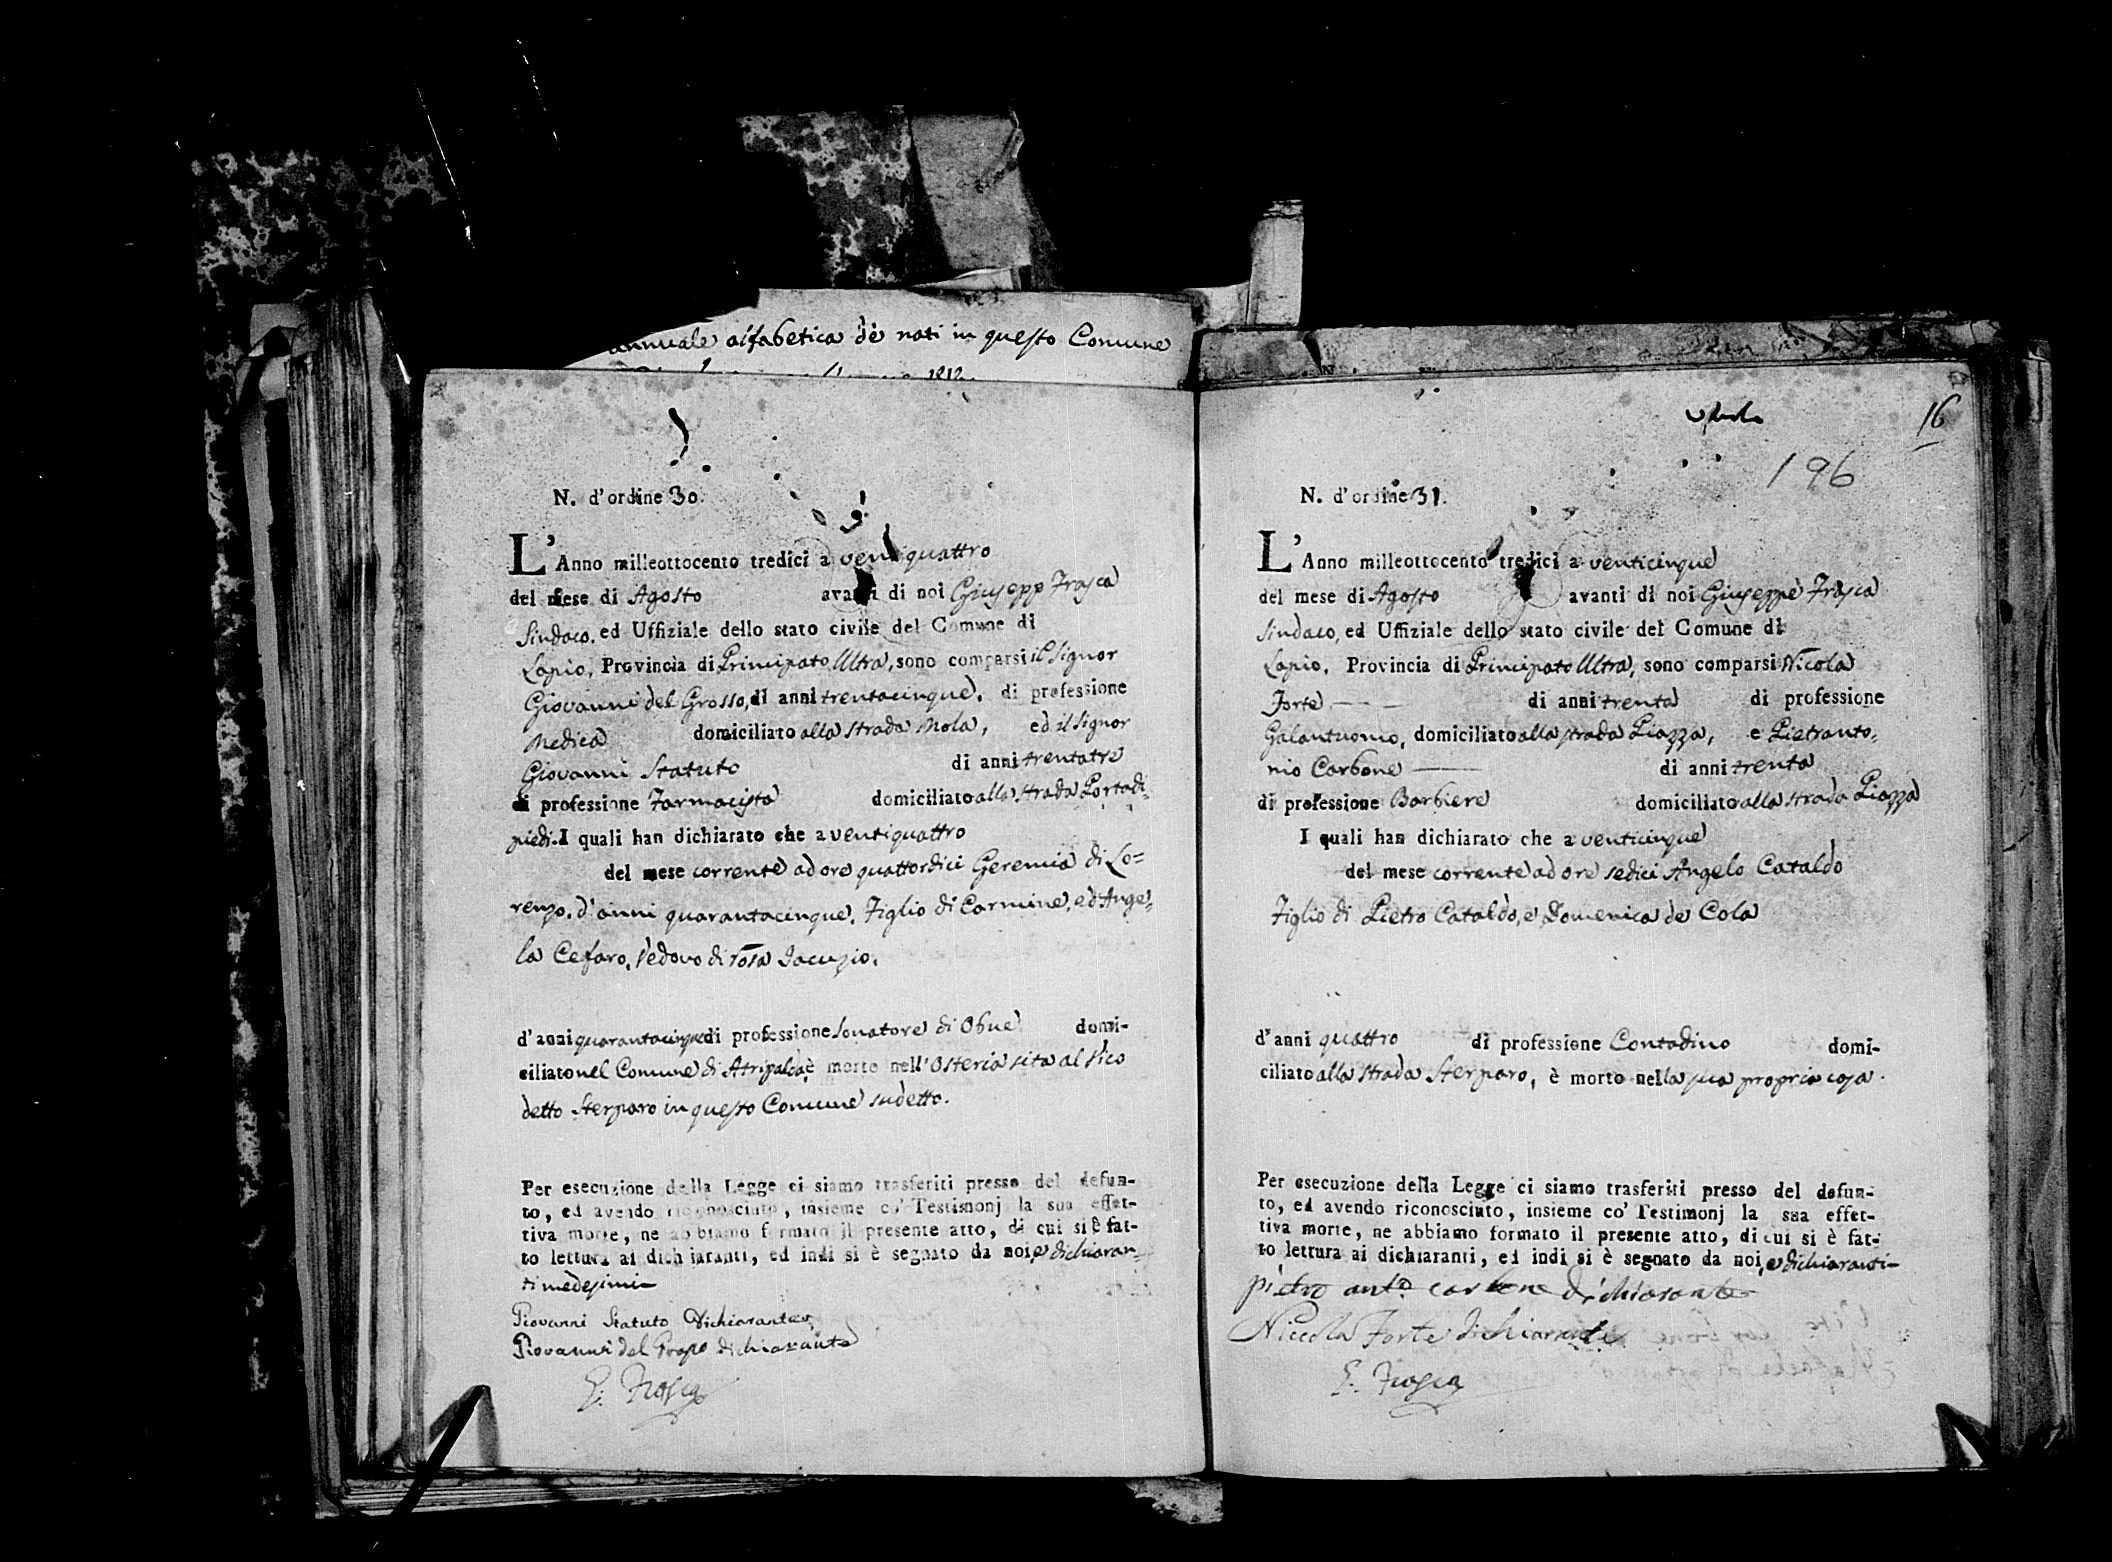 annuale alfabetica de nati in questo Comune
N. d'ordine 30.
L'Anno milleottocento tredici a ventiquattro
del mese di Agosto avanti di noi Giusepp Frasca
Sindaco, ed Uffiziale dello stato civile del Comune di
Lapio, Provincia di Principato Ultra, sono comparsi il Signor
Giovanni del Grosso, di anni trentacinque, di professione
Medico domiciliato alla strada Mola, ed il Signor
Giovanni Statuto di anni trentatre
di professione Farmacista domiciliato alla strada Portadi-
piedi. I quali han dichiarato che a ventiquattro
del mese corrente ad ore quattordici Geremia di Lo=
renzo, d'anni quarantacinque, Figlio di Carmine, ed Ange=
la Cefaro, Vedovo di rosa Iacuzio.
d'anni quarantacinque di professione Sonatore di Obue domi-
ciliato nel Comune di Atripalda, è morto nell'Osteria sita al Vico
detto Sterparo in questo Comune sudetto.
Per esecuzione della Legge ci siamo trasferiti presso del defun-
to, ed avendo riconosciuto, insieme co' Testimonj la sua effet-
tiva morte, ne abbiamo formato il presente atto, di cui si è fat-
to lettura ai dichiaranti, ed indi si è segnato da noi, e dichiaran-
ti medesimi
Giovanni Statuto Dichiarante
Giovanni del Grosso dichiarante
G. Frasca
16
196
N. d'ordine 31.
L'Anno milleottocento tredici a venticinque
del mese di Agosto avanti di noi Giuseppe Frasca
Sindaco, ed Uffiziale dello stato civile del Comune di
Lapio, Provincia di Principato Ultra, sono comparsi Nicola
Forte di anni trenta di professione
Galantuomo, domiciliato alla strada Piazza, e Pietranto=
nio Carbone di anni trenta
di professione Barbiere domiciliato alla strada Piazza
I quali han dichiarato che a venticinque
del mese corrente ad ore sedici Angelo Cataldo
Figlio di Pietro Cataldo, e Domenica de Cola
d'anni quattro di professione Contadino domi-
ciliato alla strada Sterparo, è morto nella sua propria casa.
Per esecuzione della Legge ci siamo trasferiti presso del defun-
to, ed avendo riconosciuto, insieme co' Testimonj la sua effet-
tiva morte, ne abbiamo formato il presente atto, di cui si è fat-
to lettura ai dichiaranti, ed indi si è segnato da noi, e dichiaranti
pietro ant.o carbone dichiarante
Niccola Forte dichiarante
G. Frasca